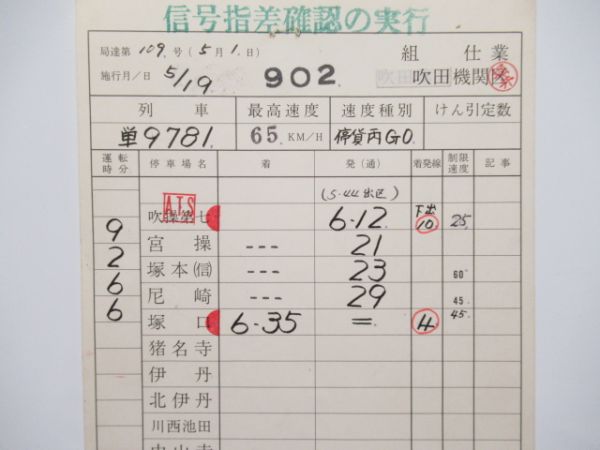 信号指差確認の実行
局達第109号(5月1.日)
施行月/日 5/19
902.
組 仕業
吹田機関区
列車 最高速度 速度種別 けん引定数
単9781. 65 KM/H 停貨丙G0.
運転時分 停車場名 着 発(通) 着発線 制限速度 記事
(5.44出区)
ATS
9 吹操第七 6-12. 下出10 25
2 宮操 --- 21
6 塚本(信) --- 23 60
6 尼崎 --- 29 45
塚口 6-35 = 4. 45
猪名寺
伊丹
北伊丹
川西池田
中山寺